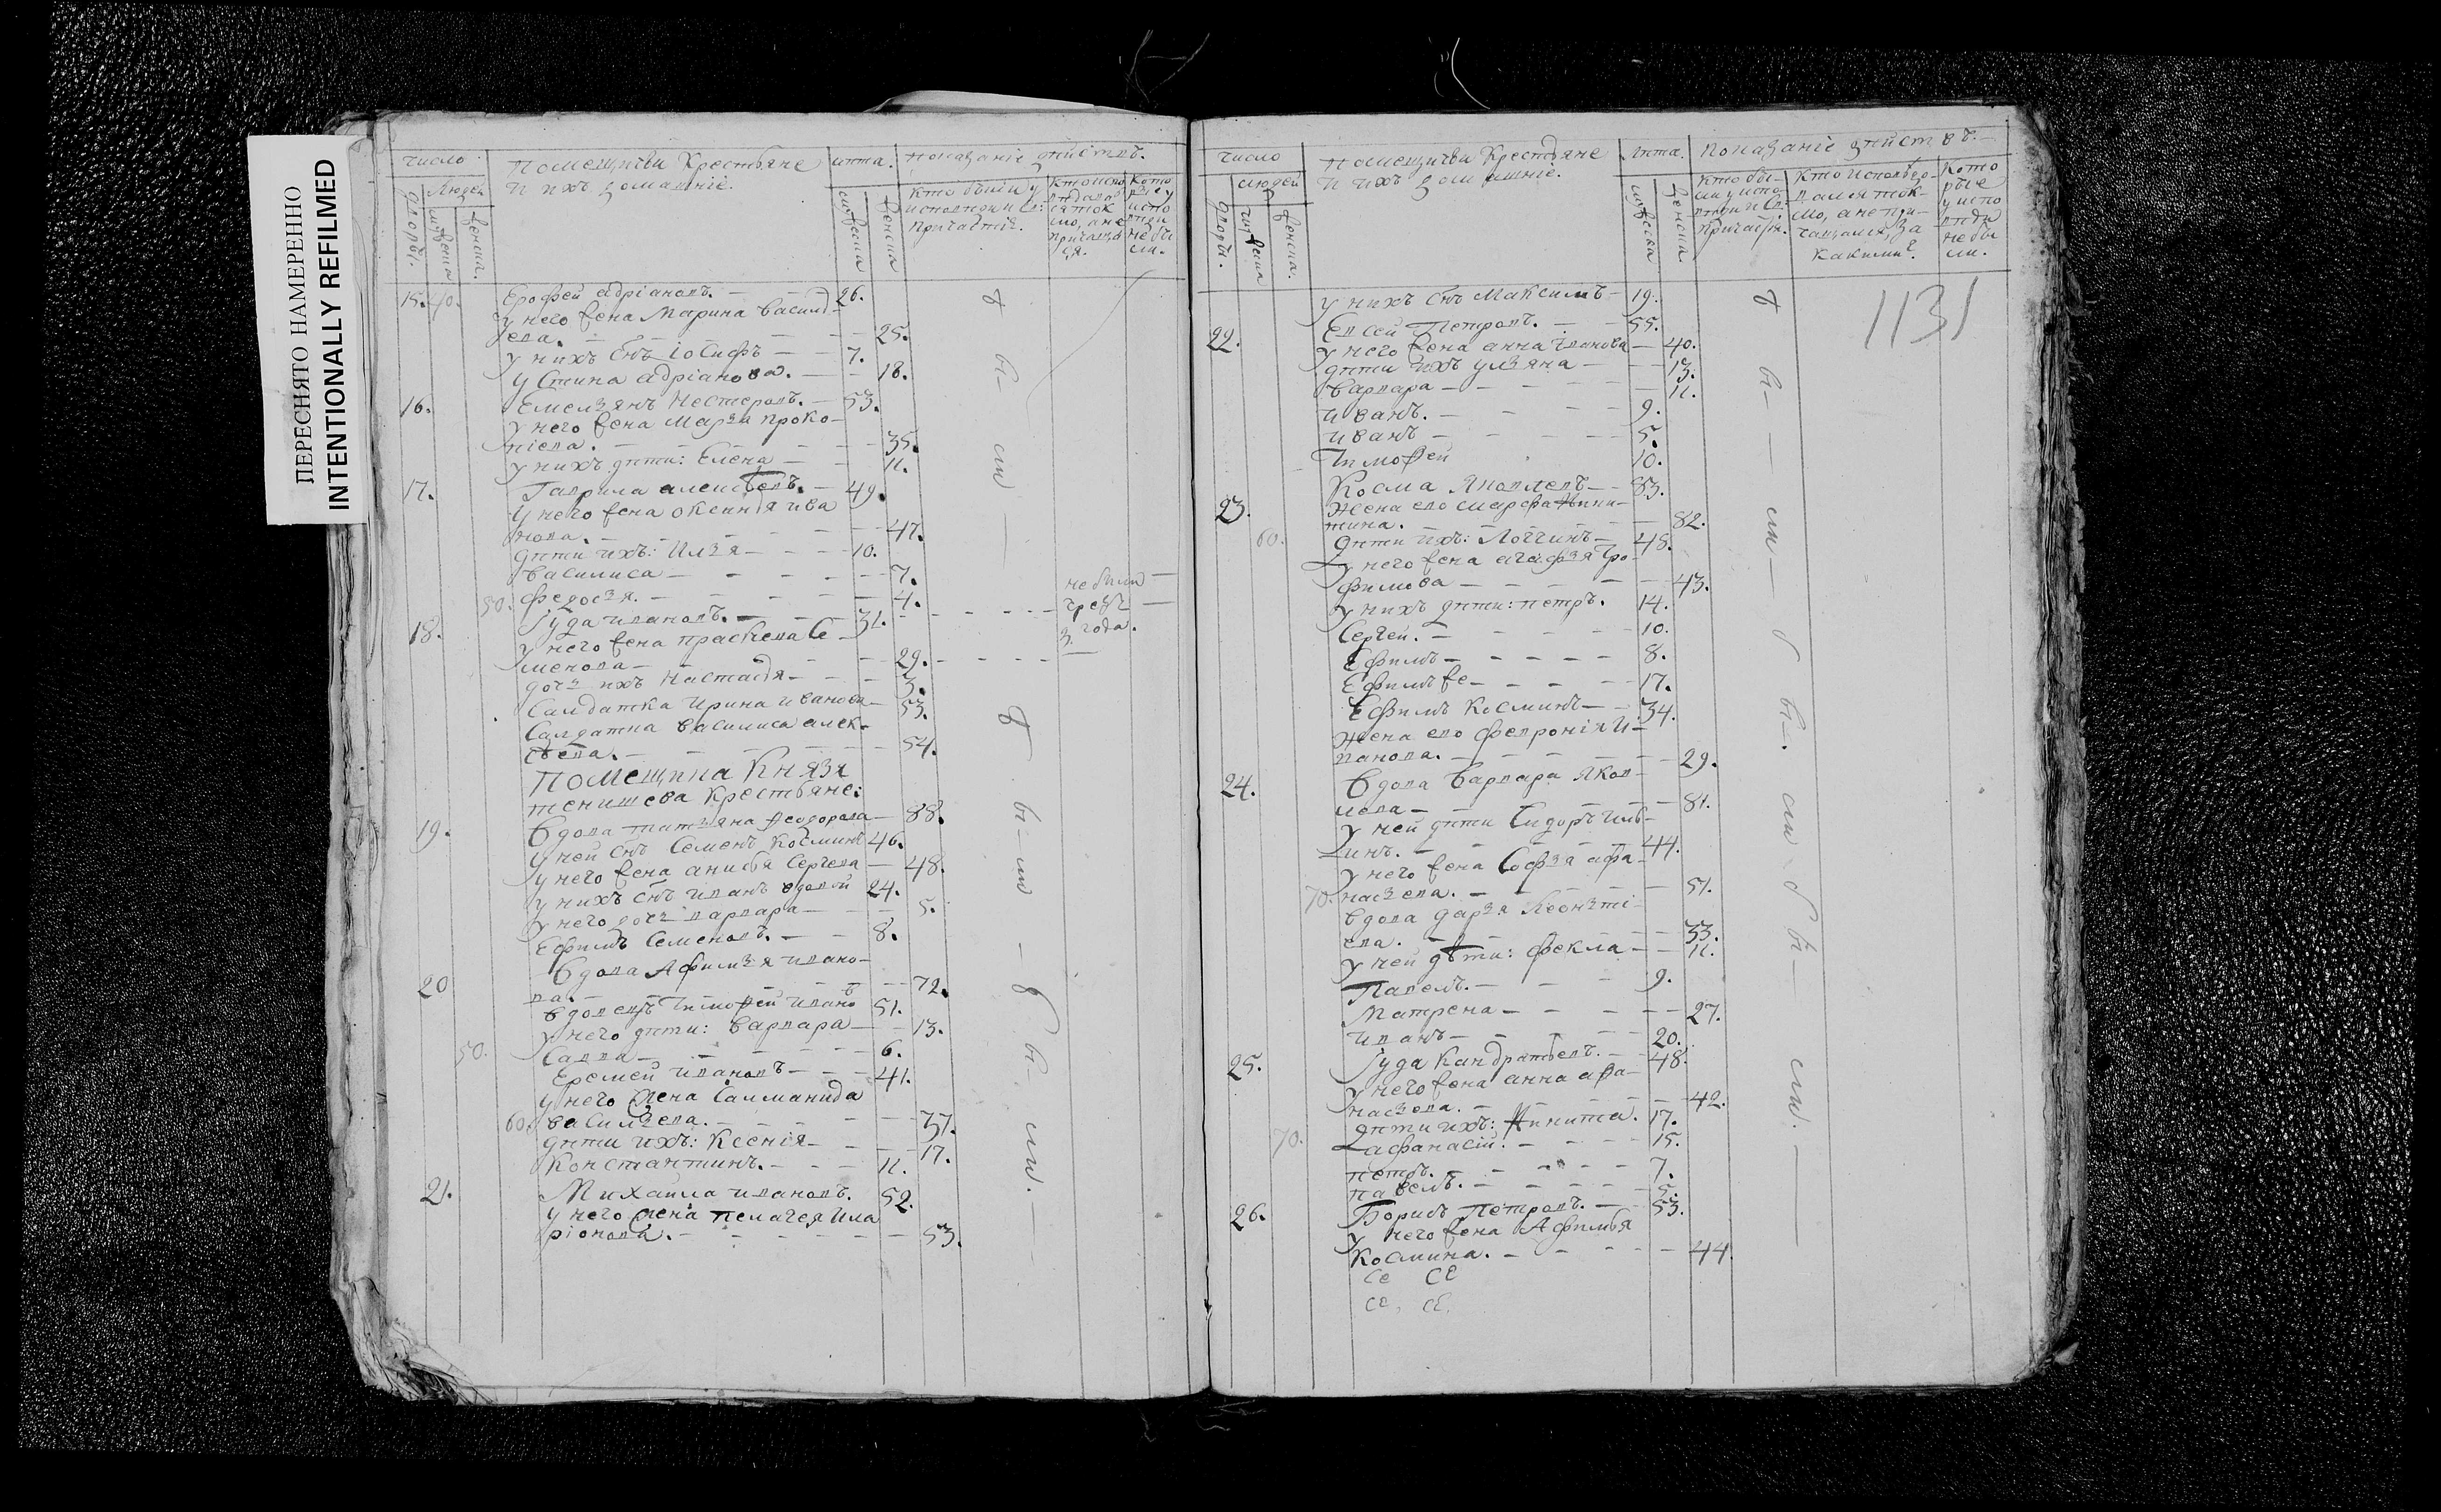 ПЕРЕСНЯТО НАМЕРЕННО
INTENTIONALLY REFILMED
число
Людей
Помещичьи Крестьяне
и ихъ домашнiе.
лѣта.
Показанiе дѣйствъ.
дворы.
мужеска
женска.
мужеска
женска
Кто былъ у
исповеди и св:
причастiя.
15. 40. Ерофей Адрiановъ. — 26.
у него жена Марина Василь-
ева. — 25.
у нихъ снъ Iосифъ — 7.
Устина Адрiанова. — 18.
16. Емельянъ Нестеровъ. — 53.
у него жена Марья Проко-
пiева. — 35.
у нихъ дѣти: Елена — 11.
17. Гаврила Алексѣевъ. — 49.
у него жена Оксинья Ива
нова. — 47.
дѣти ихъ: Илья — 10.
Василиса — 7.
50. Федосья. — 4.
18. Iуда Ивановъ. — 31.
у него жена Прасковья Се
менова — 29.
дочь ихъ Настасья — 3.
не были
чрезъ
3 года.
Салдатка Ирина Иванова — 53.
Салдатка Василиса Алек-
сѣева. — 54.
Помещика Князя
Тенишева Крестьяне:
19. Вдова Татьяна Феодорова — 88.
у ней снъ Семенъ Косминъ 46.
у него жена Анисья Сергева — 48.
у нихъ снъ Иванъ вдовой 24.
у него дочь Варвара — 5.
Ефимъ Семеновъ. — 8.
20 Вдова Афимья Ивано-
ва. — 72.
Вдовецъ Тимофей Ивановъ 51.
у него дѣти: Варвара — 13.
50. Савва — 6.
Еремей Ивановъ — 41.
у него жена Саламанида
60. Васильева. — 37.
дѣти ихъ: Ксенiя — 17.
Константинъ. — 11.
21. Михайла Ивановъ. 52.
у него жена Пелагея Ила
рiонова. — 53.
бы — ли — бы — ли — бы ли. —
число
людей
Помещичьи Крестьяне
и ихъ домашнiе.
лѣта.
Показанiе дѣйствъ. —
дворы.
мужеска
женска.
мужеска
женска
Кто бы-
лъ у испо-
веди и св:
причастiя.
Кто исповедо-
вался ток-
мо, а не при-
чащался, за
какими?
Кото
рые
у испо
веди
не бы
ли.
1131
у нихъ снъ Максимъ — 19.
22. Евсей Петровъ. — 55.
у него жена Анна Иванова — 40.
дѣти ихъ Ульяна — 13.
Варвара — 11.
Иванъ. — 9.
Иванъ — 5.
Тимофей 10.
23. Косма Яковлевъ — 83.
Жена его Марфа Ники-
тина. — 82.
60. Дѣти ихъ: Логгинъ — 48.
у него жена Агафья Тро-
фимова — 43.
у нихъ дѣти: Петръ. 14.
Сергей. — 10.
Ефимъ — 8.
Ефимъ же — 17.
Ефимъ Косминъ — 34.
Жена его Февронiя И-
ванова. — 29.
24. Вдова Варвара Яков-
лева — 81.
у ней дѣти Сидоръ Иль-
инъ. — 44.
у него жена Софья Афа-
70. насьева. — 51.
Вдова Дарья Леонтi-
ева. — 33.
у ней дѣти: Фекла — 11.
Павелъ. — 9.
Матрена — 27.
Иванъ — 20.
25. Iуда Кандратьевъ. — 48.
у него жена Анна Афа-
насьева. — 42.
дѣти ихъ: Никита. 17.
70. Афанасiй. — 15.
Петръ. — 7.
Павелъ. — 5.
26. Борисъ Петровъ. — 53.
у него жена Афимья
Космина. — 44
се се
се, се.
бы — ли — бы — ли — бы — ли. —